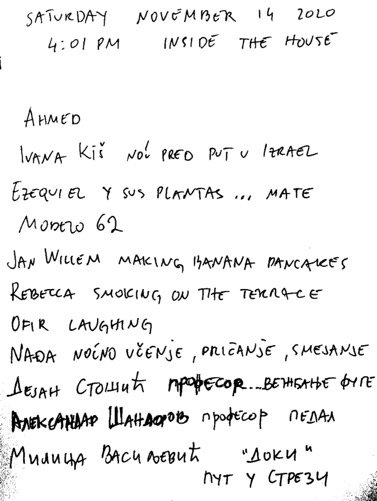 SATURDAY NOVEMBER 14 2020
4:01 PM INSIDE THE HOUSE
AHMED
IVANA KIŠ NOĆ PRED PUT U IZRAEL
EZEQUIEL Y SUS PLANTAS... MATE
MODELO 62
JAN WILLEM MAKING BANANA PANCAKES
REBECCA SMOKING ON THE TERRACE
OFIR LAUGHING
NAĐA NOĆNO UČENJE, PRIČANJE, SMEJANJE
ДЕЈАН СТОШИЋ ПРОФЕСОР... ВЕЖБАЊЕ ФУГЕ
АЛЕКСАНДАР ШАНДОРОВ ПРОФЕСОР ПЕДАЛ
МИЛИЦА ВАСИЉЕВИЋ "ДОКИ"
ПУТ У СТРЕЗИ